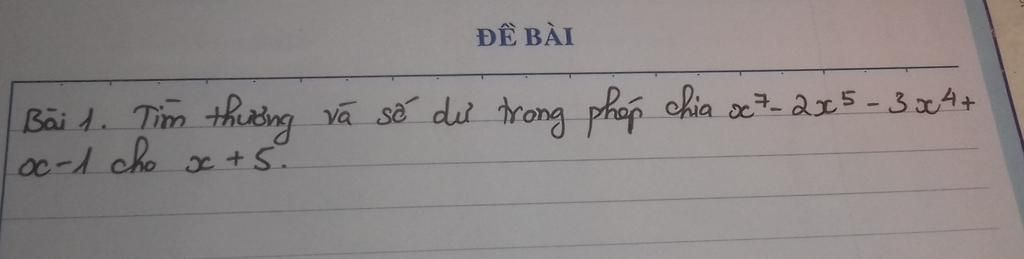 ĐỀ BÀI
Bài 1. Tìm thương và số dư trong phép chia x⁷ - 2x⁵ - 3x⁴ +
x - 1 cho x + 5.